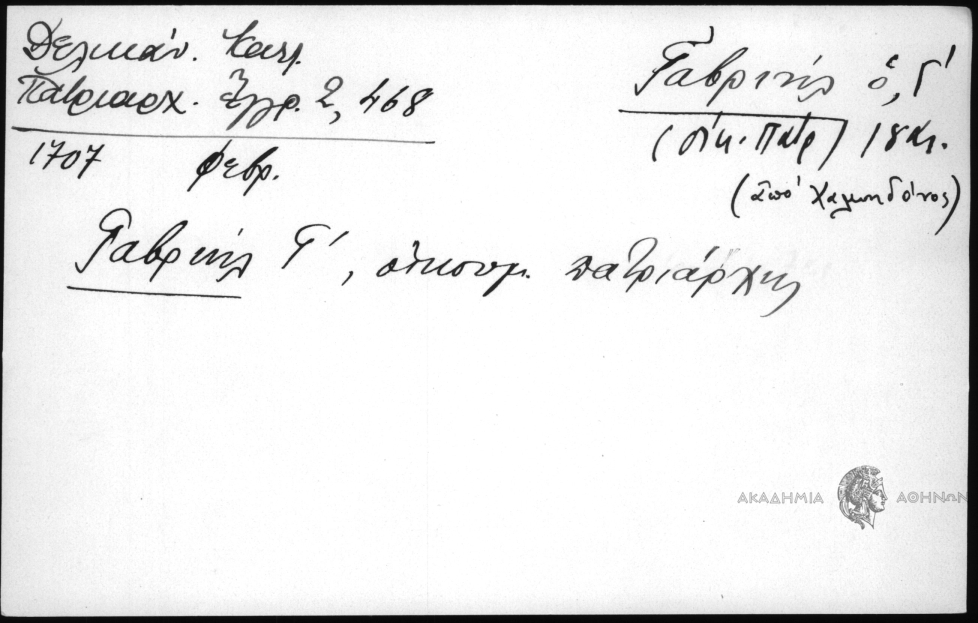 Δελικάν. Καλ.
Πατριαρχ. Ἔγγρ. 2, 468
1707 Φεβρ.
Γαβριήλ ὁ, Γ'
(οἰκ. Πατρ) 18 αἰ.
(ἀπό Χαλκηδόνος)
Γαβριήλ Γ', οἰκουμ. πατριάρχης
ΑΚΑΔΗΜΙΑ ΑΘΗΝΩΝ